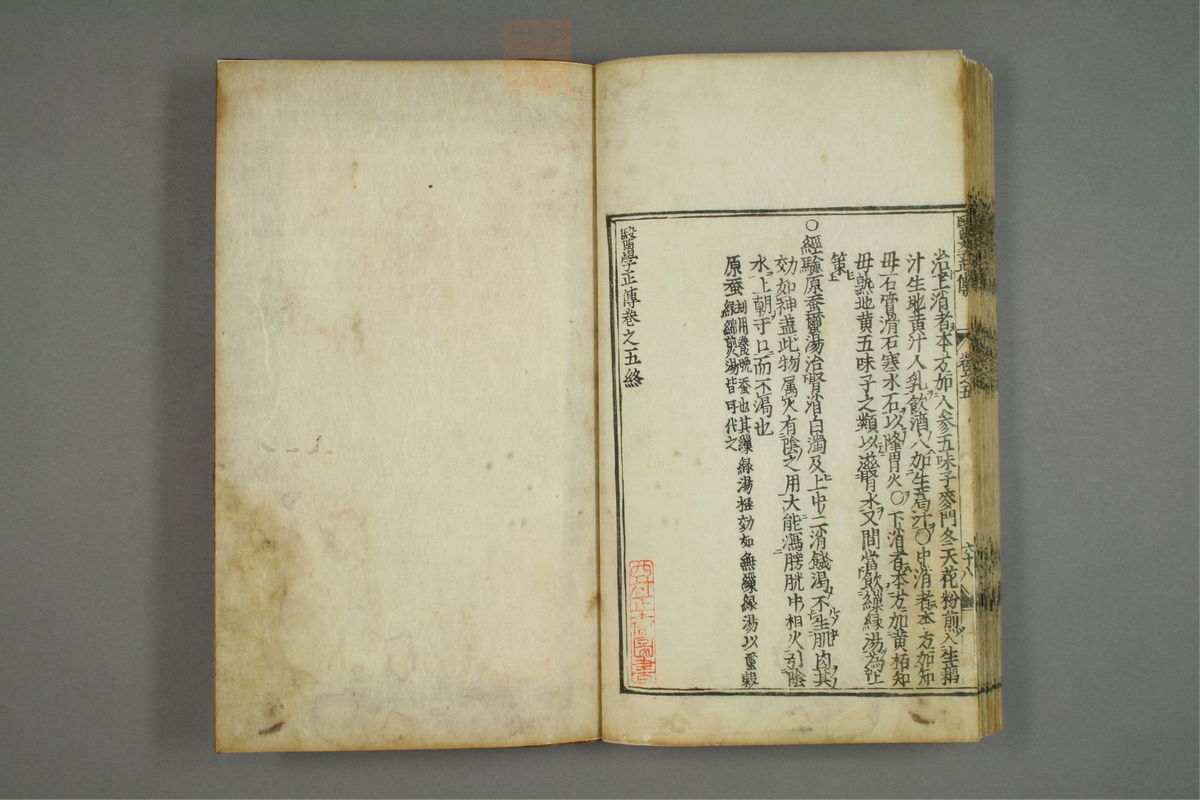 醫學正傳 卷之五 六十八
治上消者本方加人參五味子麥門冬天花粉煎入生藕
汁生地黃汁人乳飲酒人加生葛汁○中消者本方加知
母石膏滑石寒水石以降胃火○下消者本方加黃栢知
母熟地黃五味子之類以滋腎水又間當飲繅絲湯為上
策
○經驗原蚕蠒湯治腎消白濁及上中二消饑渴不生肌肉其
効如神盖此物属火有陰之用大能瀉膀胱中相火引陰
水上朝于口而不渴也
原蚕却用養晚蚕也其繅絲湯極効如無繅絲湯以蠒殼
絲綿煎湯皆可代之
醫學正傳卷之五終